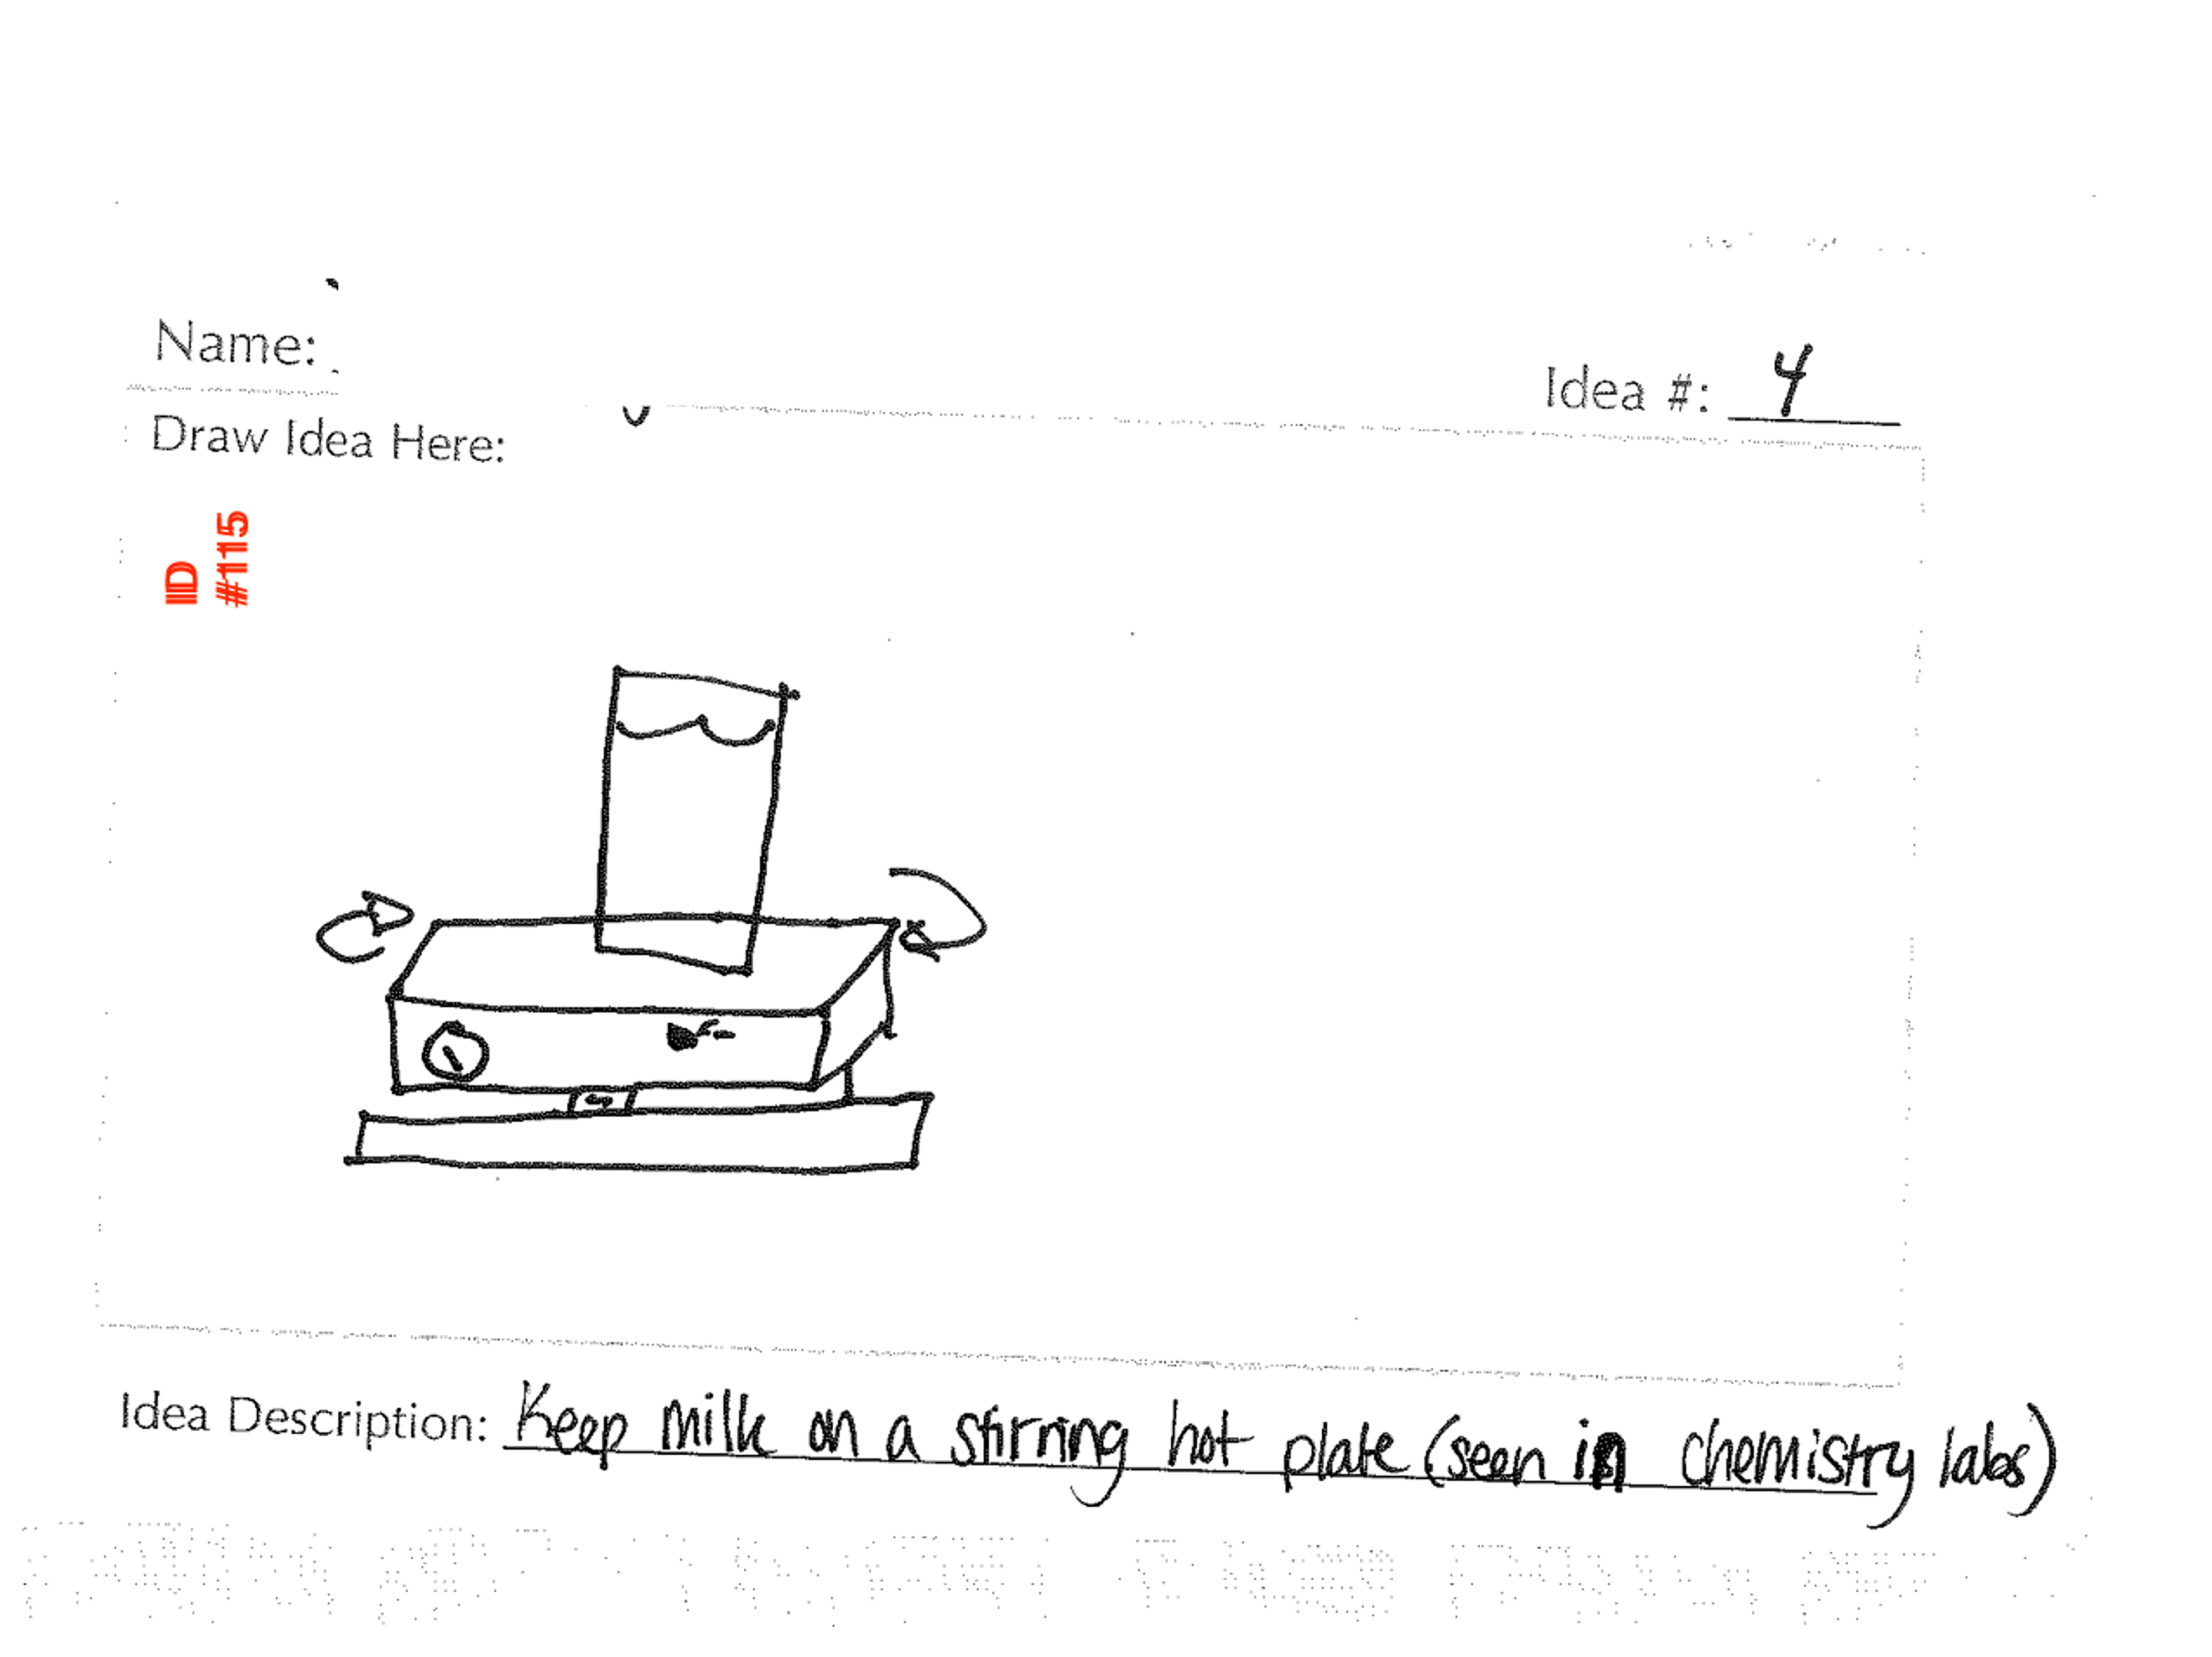 Name:
Idea #: 4
Draw Idea Here:
ID
#115
Idea Description: Keep milk on a stirring hot plate (seen in chemistry labs)